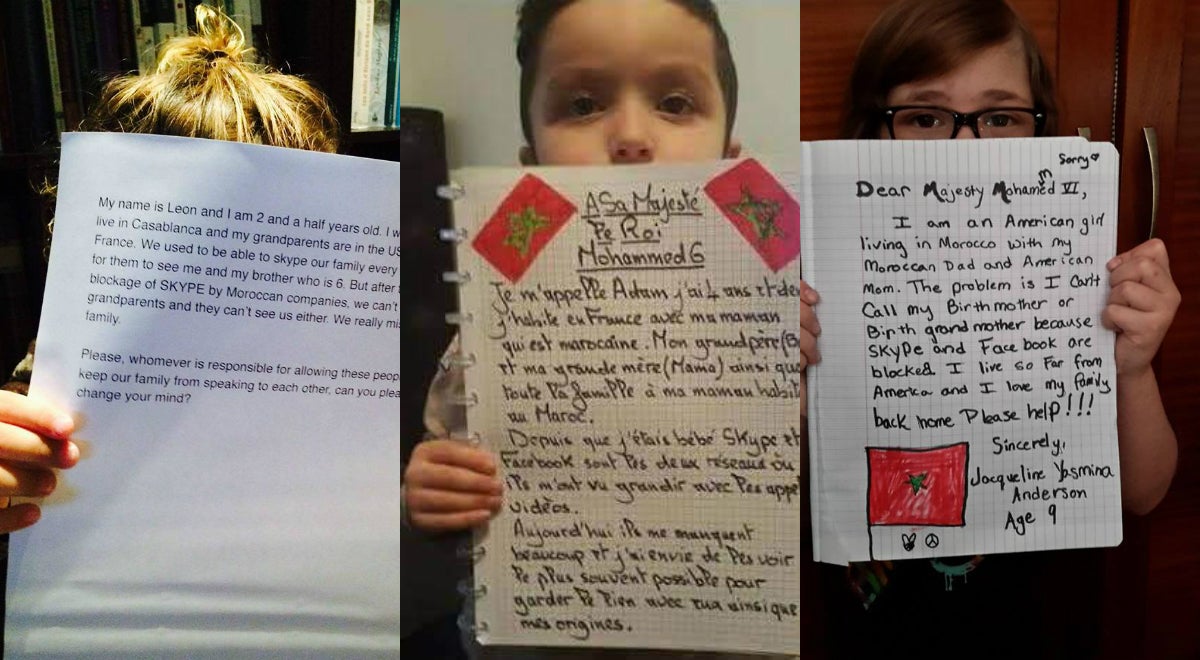 My name is Leon and I am 2 and a half years old. I
live in Casablanca and my grandparents are in the
France. We used to be able to skype our family every
for them to see me and my brother who is 6. But after
blockage of SKYPE by Moroccan companies, we can't
grandparents and they can't see us either. We really
family.
Please, whomever is responsible for allowing these
keep our family from speaking to each other, can you
change your mind?
A Sa Majesté
le Roi
Mohammed 6
Je m'appelle Adam j'ai 4 ans et
j'habite en France avec ma maman
qui est marocaine. Mon grand père
et ma grande mère (Mama) ainsi que
toute la famille à ma maman
au Maroc.
Depuis que j'étais bébé Skype et
Facebook sont les deux réseaux où
ils m'ont vu grandir avec les
vidéos.
Aujourd'hui ils me manquent
beaucoup et j'ai envie de les voir
le plus souvent possible pour
garder le lien avec eux ainsi que
mes origines.
Sorry
Dear Majesty Mohamed VI,
m
I am an American girl
living in Morocco with my
Moroccan Dad and American
Mom. The problem is I Can't
Call my Birthmother or
Birth grandmother because
SKYPe and Facebook are
blocked. I live so Far from
America and I love my Family
back home Please help!!!
Sincerely,
Jacqueline Yasmina
Anderson
Age 9